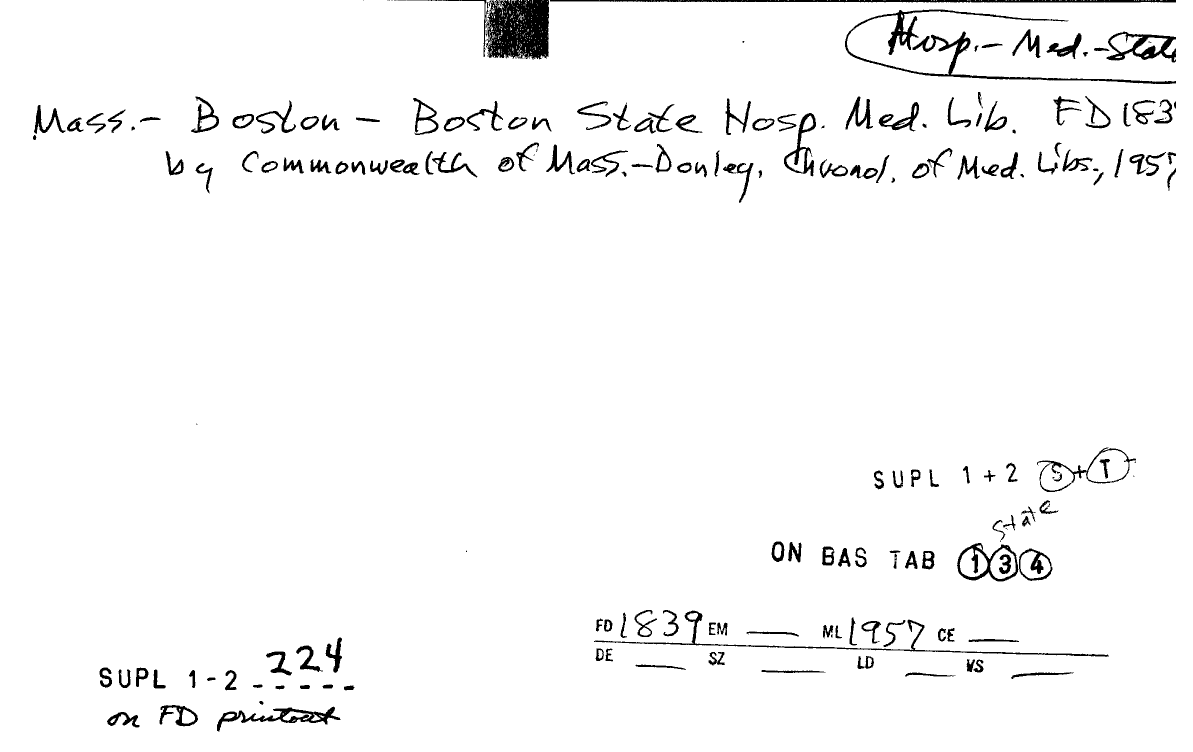 Hosp.- Med.-State
Mass.- Boston - Boston State Hosp. Med. Lib. FD 183
by Commonwealth of Mass.-Donley, Chronol. of Med. Libs., 1957
SUPL 1+2 S+T
State
ON BAS TAB 1 3 4
FD 1839 EM ___ ML 1957 CE ___
DE ___ SZ ___ LD ___ VS ___
SUPL 1-2 224
on FD printout